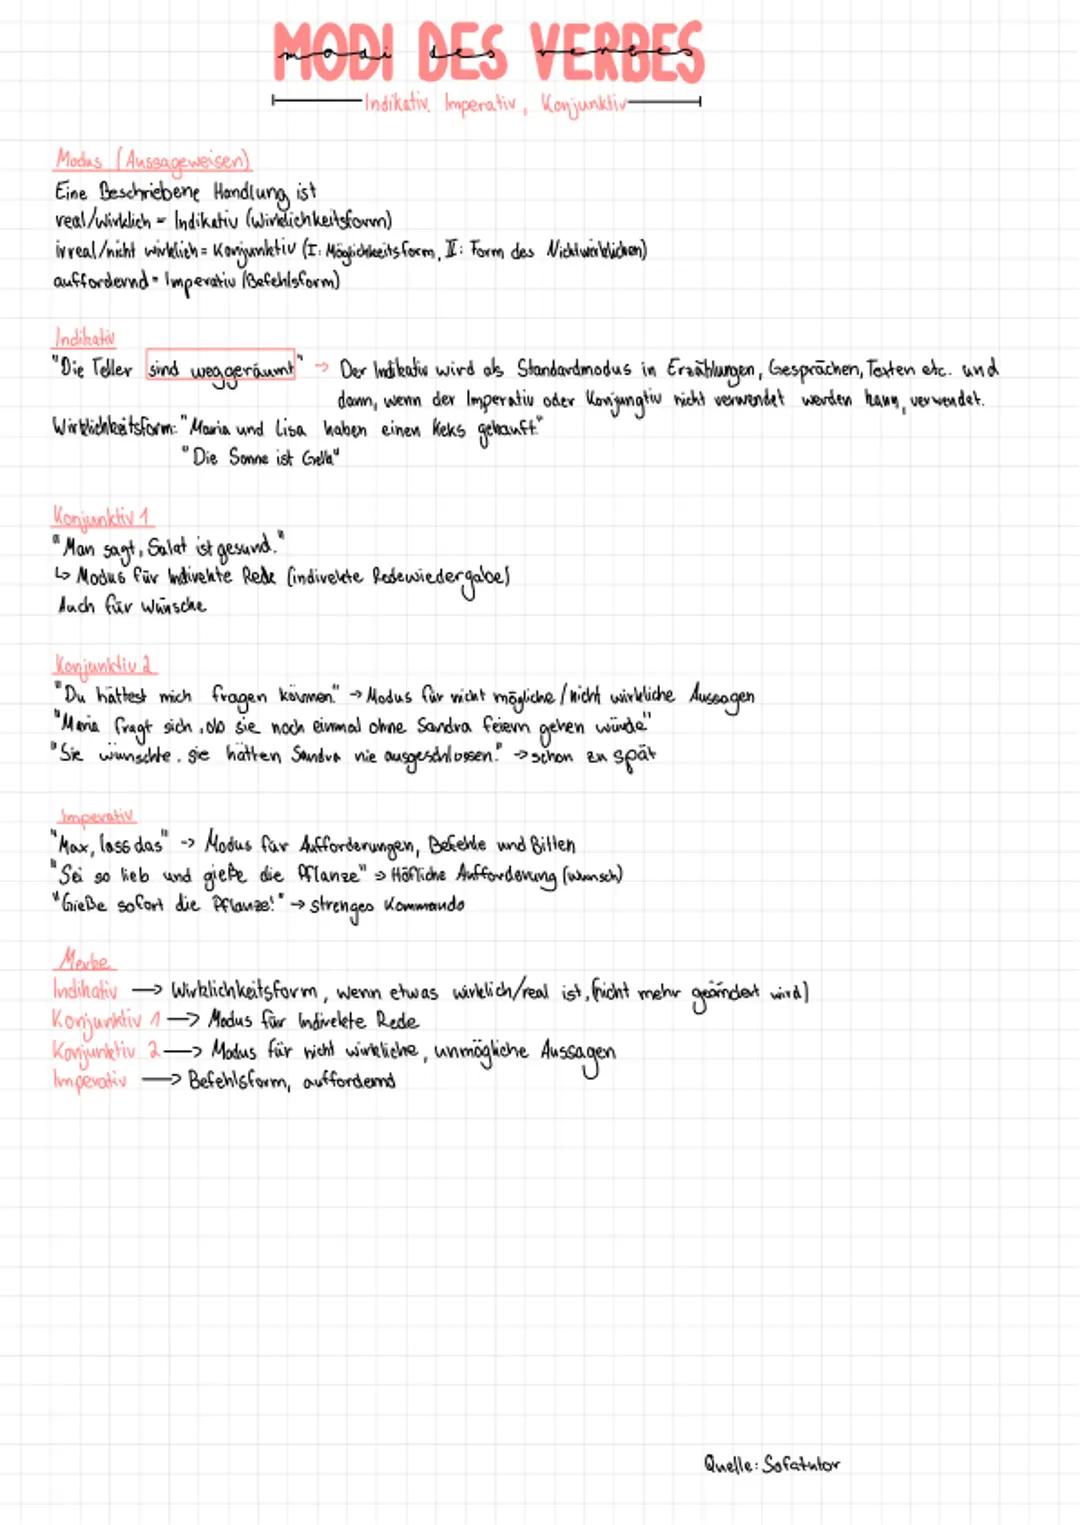 MODI DES VERBES
modi des verbes
Indikativ, Imperativ, Konjunktiv
Modus (Aussageweisen)
Eine Beschriebene Handlung ist
real/wirklich = Indikativ (Wirklichkeitsform)
irreal/nicht wirklich = Konjunktiv (I: Möglichkeitsform, II: Form des Nichtwirklichen)
auffordernd = Imperativ (Befehlsform)
Indikativ
"Die Teller sind weggeräumt" → Der Indikativ wird als Standardmodus in Erzählungen, Gesprächen, Texten etc. und
dann, wenn der Imperativ oder Konjungtiv nicht verwendet werden kann, verwendet.
Wirklichkeitsform: "Maria und Lisa haben einen Keks gekauft."
"Die Sonne ist Gelb"
Konjunktiv 1
"Man sagt, Salat ist gesund."
↳ Modus für Indirekte Rede (indirekte Redewiedergabe)
Auch für Wünsche
Konjunktiv 2
"Du hättest mich fragen können" → Modus für nicht mögliche / nicht wirkliche Aussagen
"Maria fragt sich, ob sie noch einmal ohne Sandra feiern gehen würde"
"Sie wünschte, sie hätten Sandra nie ausgeschlossen." → schon zu spät
Imperativ
"Max, lass das" -> Modus für Aufforderungen, Befehle und Bitten
"Sei so lieb und gieße die Pflanze" → Höfliche Aufforderung (Wunsch)
"Gieße sofort die Pflanze!" → strenges Kommando
Merke
Indikativ → Wirklichkeitsform, wenn etwas wirklich/real ist, (nicht mehr geändert wird)
Konjunktiv 1 → Modus für Indirekte Rede
Konjunktiv 2 → Modus für nicht wirkliche, unmögliche Aussagen
Imperativ → Befehlsform, auffordernd
Quelle: Sofatutor